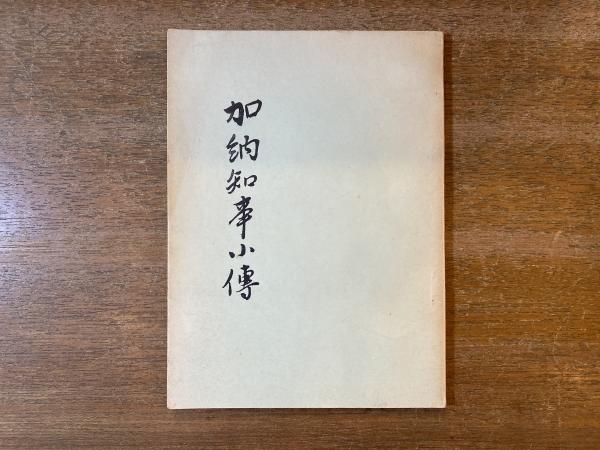 加納知事小傳